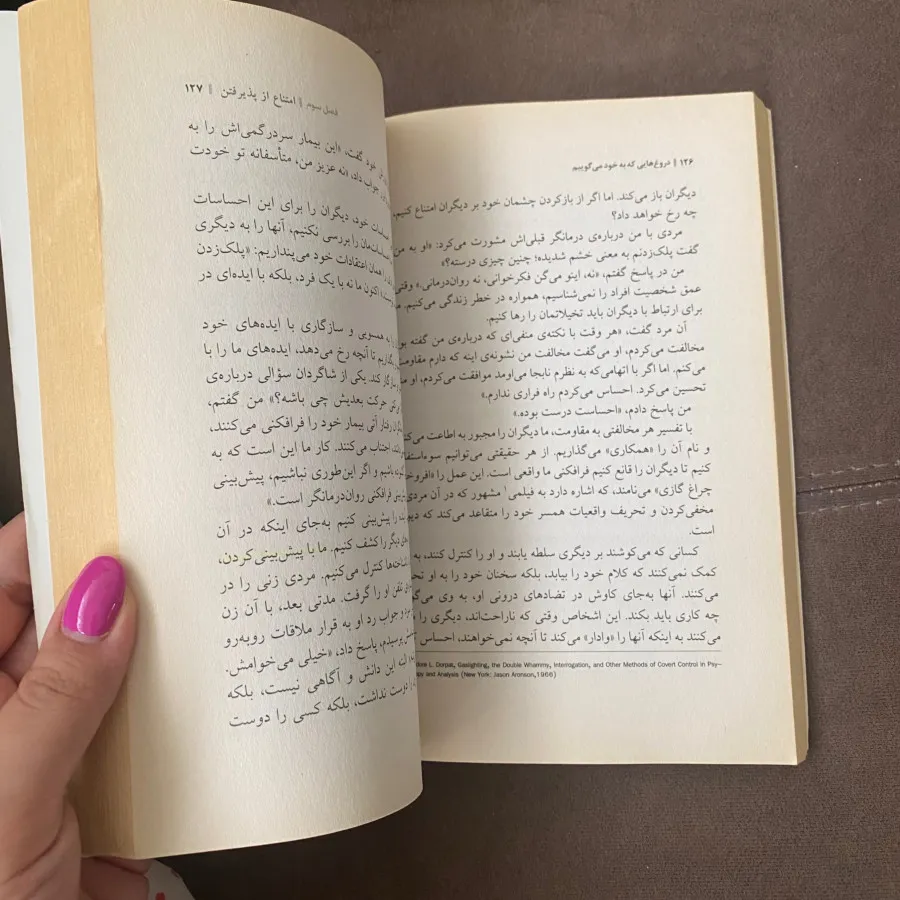 ۱۲۶ || دروغ‌هایی که به خود می‌گوییم
دیگران باز می‌کند. اما اگر از بازکردن چشمان خود بر دیگران امتناع کنیم،
چه رخ خواهد داد؟
مردی با من درباره‌ی درمانگر قبلی‌اش مشورت می‌کرد: «او به من
گفت پلک‌زدنم به معنی خشم شدیده؛ چنین چیزی درسته؟»
من در پاسخ گفتم، «نه، اینو می‌گن فکرخوانی، نه روان‌درمانی.» وقتی
عمق شخصیت افراد را نمی‌شناسیم، همواره در خطر زندگی می‌کنیم.
برای ارتباط با دیگران باید تخیلاتمان را رها کنیم.
آن مرد گفت، «هر وقت با نکته‌ی منفی‌ای که درباره‌ی من گفته
مخالفت می‌کردم، او می‌گفت مخالفت من نشونه‌ی اینه که دارم
می‌کنم. اما اگر با اتهامی‌که به نظرم نابجا می‌اومد موافقت می‌کردم، او
تحسین می‌کرد. احساس می‌کردم راه فراری ندارم.»
من پاسخ دادم، «احساست درست بوده.»
با تفسیر هر مخالفتی به مقاومت، ما دیگران را مجبور به اطاعت
و نام آن را «همکاری» می‌گذاریم. از هر حقیقتی می‌توانیم
کنیم تا دیگران را قانع کنیم فرافکنی ما واقعی است. این عمل را
چراغ گازی» می‌نامند، که اشاره دارد به فیلمی۱ مشهور که در آن مردی
مخفی‌کردن و تحریف واقعیات همسر خود را متقاعد می‌کند که
است.
کسانی که می‌کوشند بر دیگری سلطه یابند و او را کنترل کنند، به
کمک نمی‌کنند که کلام خود را بیابد، بلکه سخنان خود را به او
می‌کنند. آنها به‌جای کاوش در تضادهای درونی او، به وی
چه کاری باید بکند. این اشخاص وقتی که ناراحت‌اند، دیگری را
می‌کنند به اینکه آنها را «وادار» می‌کند تا آنچه نمی‌خواهند، احساس
L. Dorpat, Gaslighting, the Double Whammy, Interrogation, and Other Methods of Covert Control in Psy-
and Analysis (New York: Jason Aronson,1966)
فصل سوم || امتناع از پذیرفتن || ۱۲۷
خود گفت، «این بیمار سردرگمی‌اش را به
جواب داد، «نه عزیز من، متأسفانه تو خودت
خود، دیگران را برای این احساسات
را بررسی نکنیم، آنها را به دیگری
همان اعتقادات خود می‌پنداریم: «پلک‌زدن
اکنون ما نه با یک فرد، بلکه با ایده‌ای در
همسویی و سازگاری با ایده‌های خود
تا آنچه رخ می‌دهد، ایده‌های ما را با
کند. یکی از شاگردان سؤالی درباره‌ی
حرکت بعدیش چی باشه؟» من گفتم،
رفتار آنی بیمار خود را فرافکنی می‌کنند،
اجتناب می‌کنند. کار ما این است که به
باشیم و اگر این‌طوری نباشیم، پیش‌بینی
فرافکنی روان‌درمانگر است.»
را پیش‌بینی کنیم به‌جای اینکه در آن
دیگر را کشف کنیم. ما با پیش‌بینی کردن،
کنترل می‌کنیم. مردی زنی را در
تلفن او را گرفت. مدتی بعد، با آن زن
و جواب رد او به قرار ملاقات روبه‌رو
پرسیدم، پاسخ داد، «خیلی می‌خوامش.
این دانش و آگاهی نیست، بلکه
را دوست نداشت، بلکه کسی را دوست